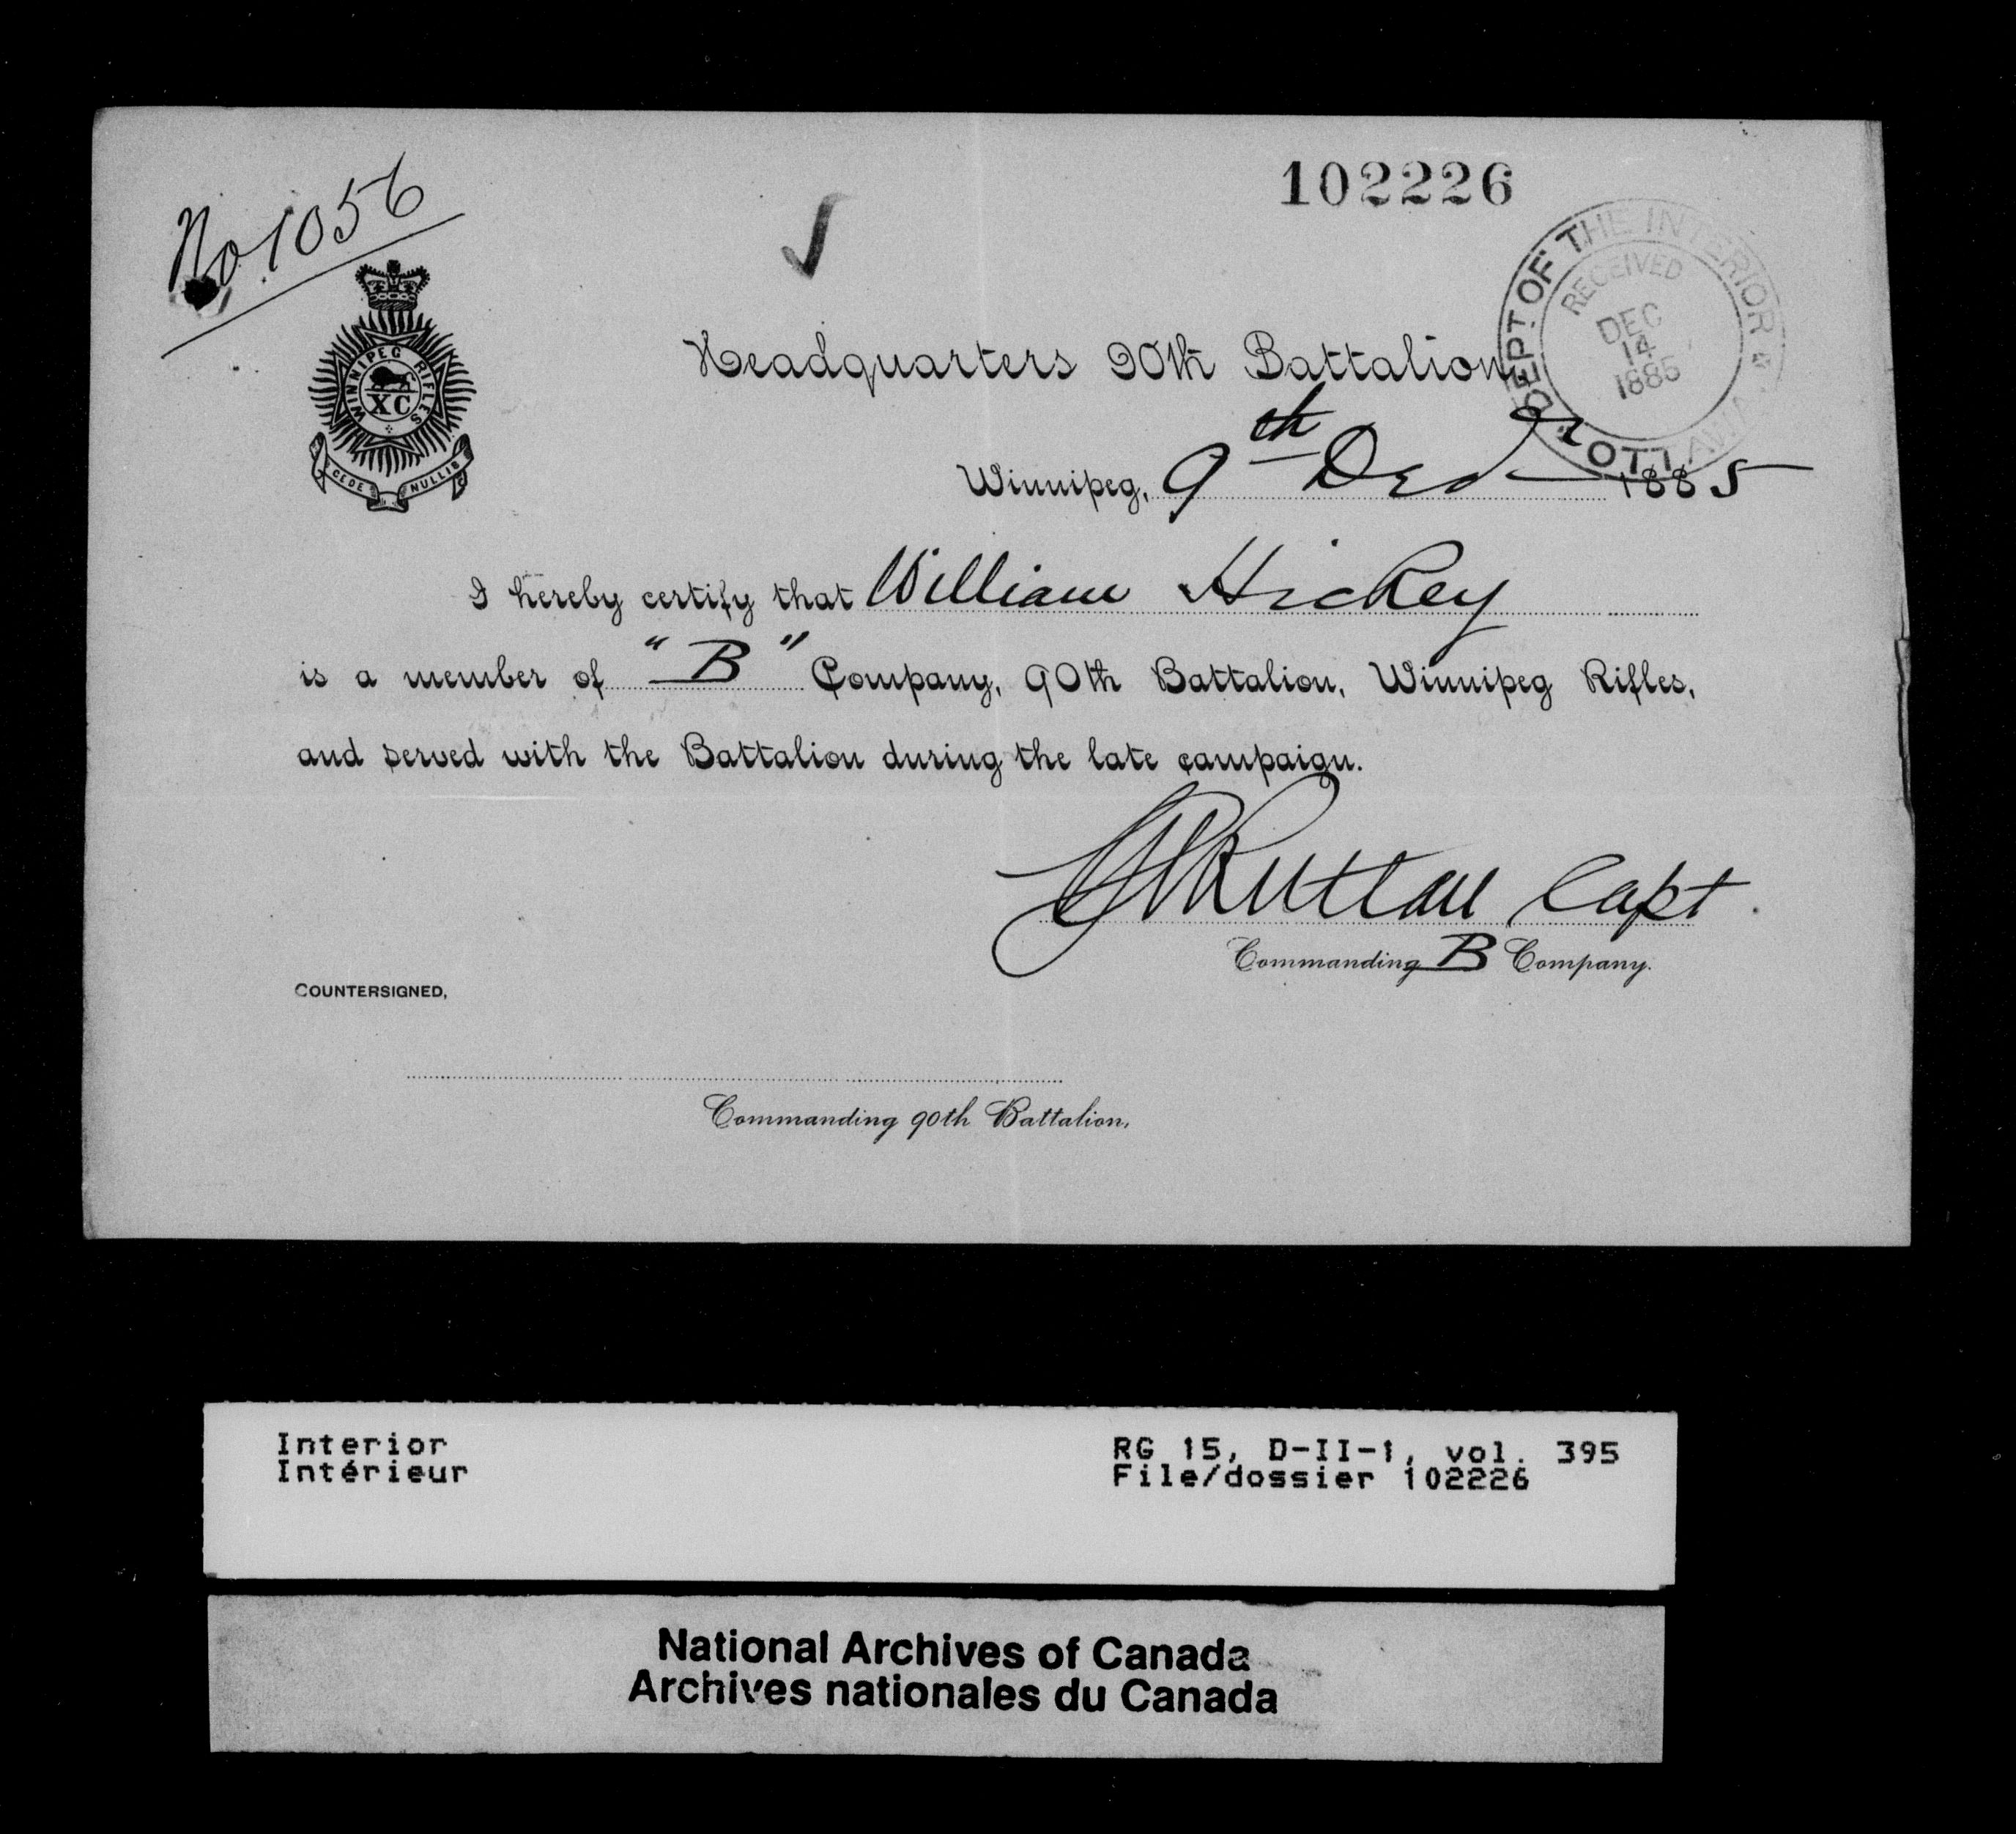 No 1056
102226
DEPT OF THE INTERIOR
OTTAWA
RECEIVED
DEC
14
1885
WINNIPEG RIFLES
XC
CEDE NULLIS
Headquarters 90th Battalion
Winnipeg, 9th Dec 1885
I hereby certify that William Hickey
is a member of "B" Company, 90th Battalion, Winnipeg Rifles,
and served with the Battalion during the late campaign.
Ruttan Capt
Commanding B Company.
COUNTERSIGNED,
Commanding 90th Battalion.
Interior
Intérieur
RG 15, D-II-1, vol. 395
File/dossier 102226
National Archives of Canada
Archives nationales du Canada